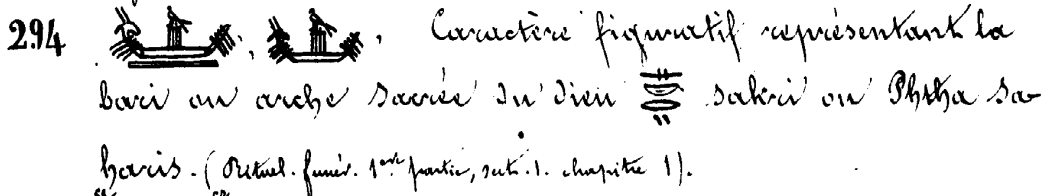 294 , . Caractère figuratif représentant la
bari ou arche sacrée du dieu sakri ou Phtha sa-
haris. (Rituel. funér. 1ere partie, sect. 1. chapitre 1).